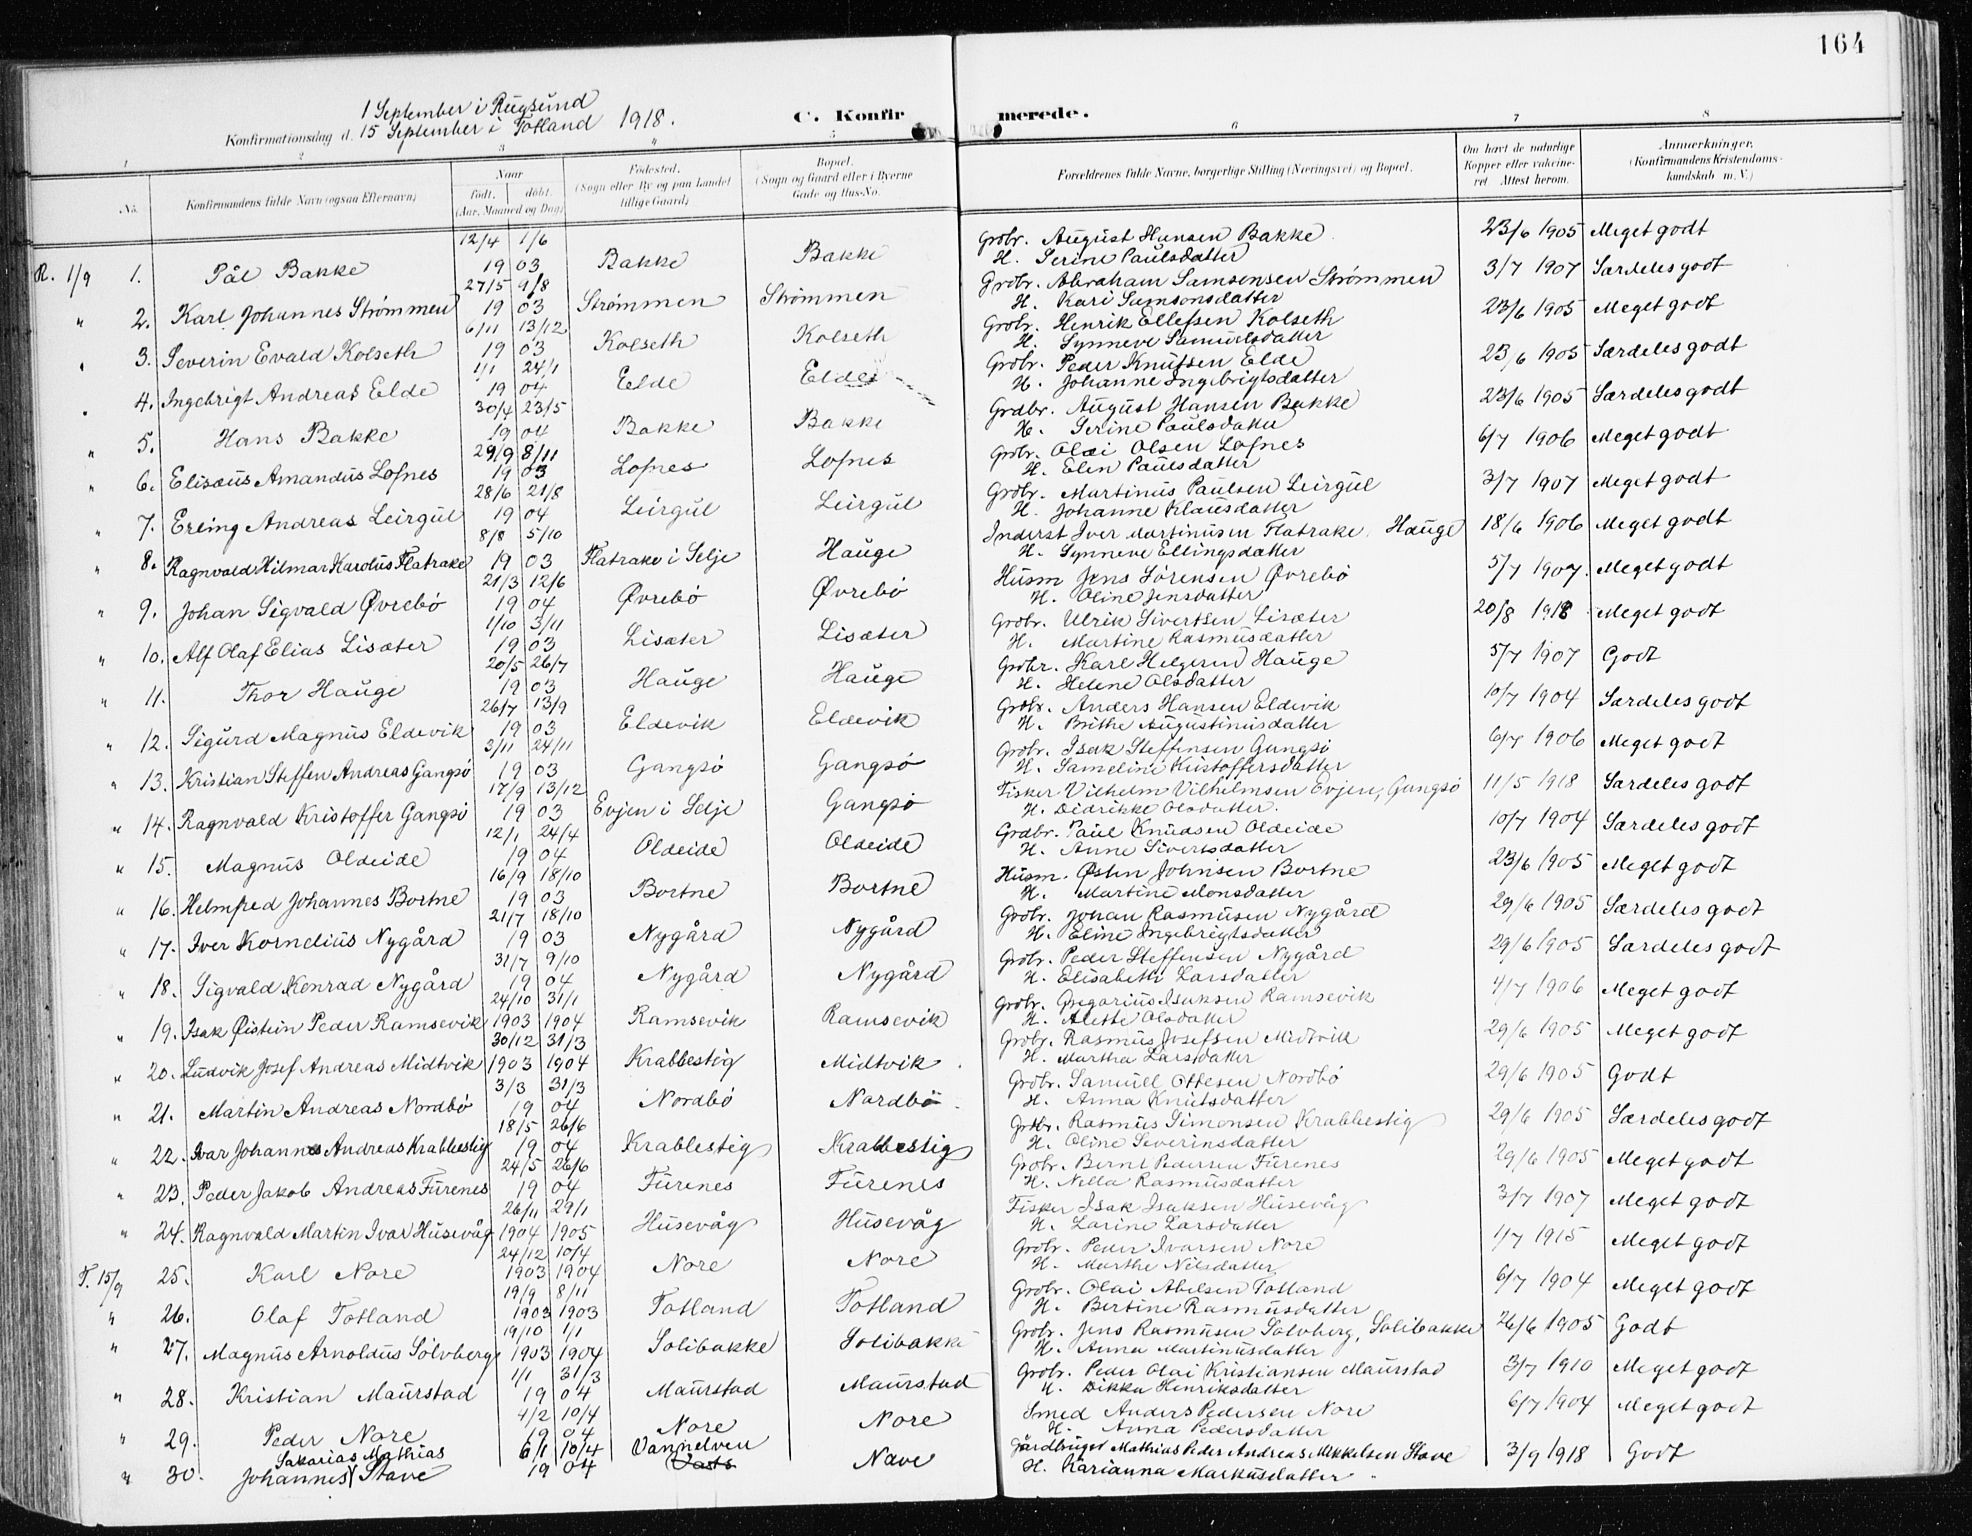 164
1 September i Rugsund
Konfirmationsdag d. 15 September i Totland 1918. C. Konfirmerede.
1 2 3 4 5 6 7 8
No. Konfirmandens fulde Navn (ogsaa Efternavn) Naar født. døbt. (Aar, Maaned og Dag) Fødested. (Sogn eller By og paa Landet tillige Gaard) Bopæl. (Sogn og Gaard eller i Byerne Gade og Hus-No.) Forældrenes fulde Navne, borgerlige Stilling (Næringsvei) og Bopæl. Om havt de naturlige Kopper eller vakcineret Attest herom. Anmærkninger. (Konfirmandens Kristendomskundskab m. V.)
R. 1/9 1. Pål Bakke 12/4 1/6 1903 Bakke Bakke Grdbr. August Hansen Bakke 23/6 1905 Meget godt
H. Serine Paulsdatter
" 2. Karl Johannes Strømmen 27/5 9/8 1903 Strømmen Strømmen Grdbr. Abraham Samsonsen Strømmen 3/7 1907 Særdeles godt
H. Kari Samsonsdatter
" 3. Severin Evald Kolseth 6/11 13/12 1903 Kolseth Kolseth Grdbr. Henrik Ellefsen Kolseth 23/6 1905 Meget godt
H. Synneve Samuelsdatter
" 4. Ingebrigt Andreas Elde 1/1 24/1 1904 Elde Elde Grdbr. Peder Knutsen Elde 23/6 1905 Særdeles godt
H. Johanne Ingebrigtsdatter
" 5. Hans Bakke 30/4 23/5 1904 Bakke Bakke Grdbr. August Hansen Bakke 23/6 1905 Særdeles godt
H. Serine Paulsdatter
" 6. Elisæus Amandus Lofnes 29/9 8/11 1903 Lofnes Lofnes Grdbr. Olai Olsen Lofnes 6/7 1906 Meget godt
H. Elin Paulsdatter
" 7. Erling Andreas Leirgul 28/6 21/8 1904 Leirgul Leirgul Grdbr. Martinus Paulsen Leirgul 3/7 1907 Meget godt
H. Johanne Klausdatter
" 8. Ragnvald Hilmar Karolus Flatrake 8/8 5/10 1903 Flatrake i Selje Hauge Inderst Iver Martinusen Flatrake, Hauge 18/6 1906 Meget godt
H. Synneve Ellingsdatter
" 9. Johan Sigvald Øvrebø 21/3 12/6 1904 Øvrebø Øvrebø Husm Jens Sørensen Øvrebø 5/7 1907. Meget godt
H. Oline Jensdatter
" 10. Alf Olaf Elias Lisæter 1/10 3/11 1903 Lisæter Lisæter Grdbr. Ulrik Sivertsen Lisæter 20/8 1918 Meget godt
H. Martine Rasmusdatter
" 11. Thor Hauge 20/5 26/7 1903 Hauge Hauge Grdbr. Karl Helgesen Hauge 5/7 1907 Godt
H. Helene Olsdatter
" 12. Sigurd Magnus Eldevik 26/7 13/9 1903 Eldevik Eldevik Grdbr. Anders Hansen Eldevik 10/7 1904 Særdeles godt
H. Brithe Augustinusdatter
" 13. Kristian Steffen Andreas Gangsø 3/11 24/11 1903 Gangsø Gangsø Grdbr. Isak Steffensen Gangsø 6/7 1906 Meget godt
H. Sameline Kristoffersdatter
" 14. Ragnvald Kristoffer Gangsø 17/9 13/12 1903 Evjen i Selje Gangsø Fisker Vilhelm Vilhelmsen Evjen, Gangsø 11/5 1918 Særdeles godt
H. Didrikke Olsdatter.
" 15. Magnus Oldeide 12/1 24/4 1904 Oldeide Oldeide Grdbr. Paul Knudsen Oldeide 10/7 1904 Særdeles godt
H. Anne Sivertsdatter
" 16. Helmfred Johannes Bortne 16/9 18/10 1903 Bortne Bortne Husm. Østen Johnsen Bortne 23/6 1905 Meget godt
H. Martine Monsdatter
" 17. Iver Kornelius Nygård 21/7 18/10 1903 Nygård Nygård Grdbr. Johan Rasmusen Nygård 29/6 1905 Særdeles godt
H. Eline Ingebrigtsdatter
" 18. Sigvald Konrad Nygård 31/7 9/10 1904 Nygård Nygård Grdbr. Peder Steffensen Nygård 29/6 1905 Særdeles godt
H. Elisabeth Larsdatter
" 19. Isak Øistein Peder Ramsevik 24/10 31/1 1903 1904 Ramsevik Ramsevik Grdbr. Gregorius Isaksen Ramsevik 4/7 1906 Meget godt
H. Alette Olsdatter
" 20. Ludvik Josef Andreas Midtvik 30/12 31/3 1903 1904 Krabbestig Midtvik Grdbr. Rasmus Josefsen Midtvik 29/6 1905 Meget godt
H. Martha Larsdatter
" 21. Martin Andreas Nordbø 3/3 31/3 1904 Nordbø Nordbø Grdbr. Samuel Ottesen Nordbø 29/6 1905 Godt
H. Anna Knutsdatter
" 22. Ivar Johannes Andreas Krabbestig 18/5 26/6 1904 Krabbestig Krabbestig Grdbr. Rasmus Simonsen Krabbestig 29/6 1905 Særdeles godt
H. Oline Severinsdatter
" 23. Peder Jakob Andreas Furenes 24/5 26/6 1904 Furenes Furenes Grdbr. Bernt Pedersen Furenes 29/6 1905 Meget godt
H. Nella Rasmusdatter
" 24. Ragnvald Martin Ivar Husevåg 26/11 29/1 1904 1905 Husevåg Husevåg Fisker Isak Isaksen Husevåg 3/7 1907 Meget godt
H. Larine Larsdatter
T. 15/9 25. Karl Nore 24/12 10/4 1903 1904 Nore Nore Grdbr. Peder Ivarsen Nore 1/7 1915 Meget godt
H. Marthe Nilsdatter
" 26. Olaf Totland 19/9 8/11 1903 1903 Totland Totland Grdbr. Olai Abelsen Totland 6/7 1904 Meget godt
H. Bertine Rasmusdatter
" 27. Magnus Arnoldus Solvberg 19/10 1/1 1903 1904 Solibakke Solibakke Grdbr. Jens Rasmusen Solvberg, Solibakke 26/6 1905 Godt
H. Anna Martinusdatter
" 28. Kristian Maurstad 1/1 31/3 1904 Maurstad Maurstad Grdbr. Peder Olai Kristiansen Maurstad 3/7 1910 Meget godt
H. Dikka Henriksdatter
" 29. Peder Nore 4/2 10/4 1904 Nore Nore Smed Anders Pedersen Nore 6/7 1904 Meget godt
H. Anna Pedersdatter
" 30. Johannes Sakarias Mathias Stave 6/1 10/4 1904 Vannelven Nave Gårdbruger Mathias Peder Andreas Mikkelsen Stave 3/9 1918 Godt
H. Karianna Markusdatter